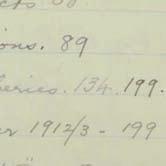 ions. 89
eries. 134. 199.
er 1912/3 - 199